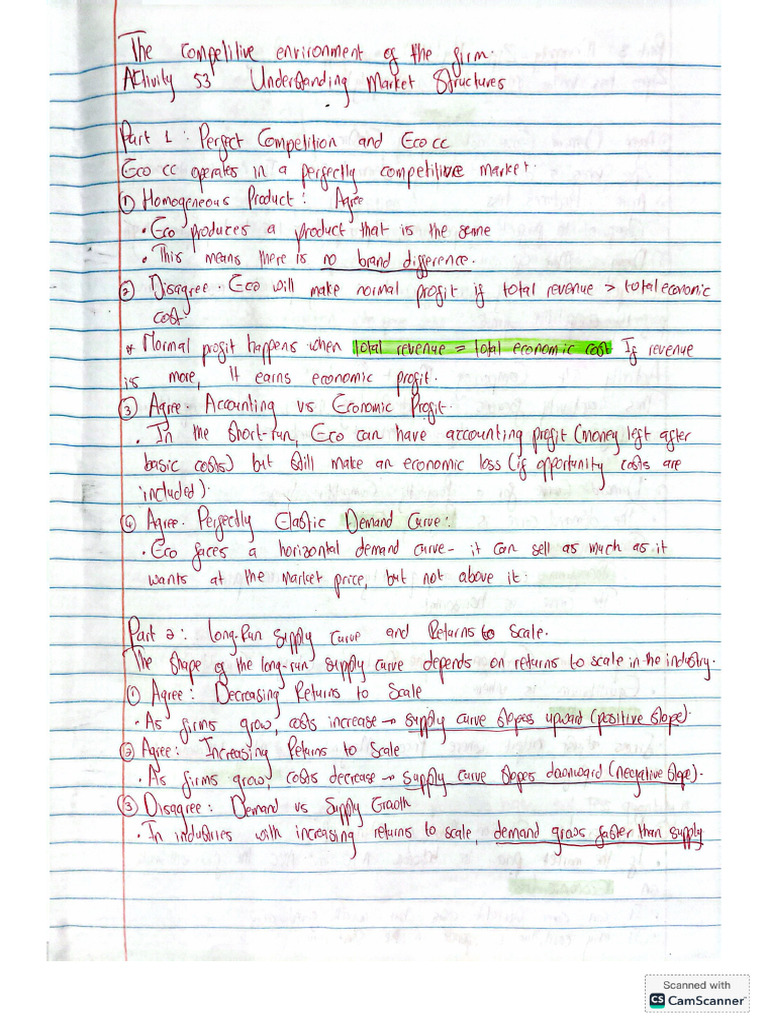 The competitive environment of the firm.
Activity 53 Understanding Market Structures
Part 1 : Perfect Competition and Eco cc
Eco cc operates in a perfectly competitive market.
① Homogeneous Product : Agree
• Eco produces a product that is the same
• This means there is no brand difference.
② Disagree . Eco will make normal profit if total revenue > total economic
cost.
* Normal profit happens when total revenue = total economic cost If revenue
is more, It earns economic profit.
③ Agree . Accounting vs Economic Profit.
• In the short-run, Eco can have accounting profit (money left after
basic costs) but still make an economic loss (if opportunity costs are
included).
④ Agree . Perfectly Elastic Demand Curve :
• Eco faces a horizontal demand curve - it can sell as much as it
wants at the market price, but not above it.
Part 2 : Long-Run Supply Curve and Returns to Scale.
The shape of the long-run supply curve depends on returns to scale in the industry.
① Agree : Decreasing Returns to Scale
• As firms grow, costs increase → supply curve slopes upward (positive slope).
② Agree : Increasing Returns to Scale
• As firms grow, costs decrease → supply curve slopes downward (negative slope).
③ Disagree : Demand vs Supply Growth
• In industries with increasing returns to scale, demand grows faster than supply
Scanned with
CS CamScanner